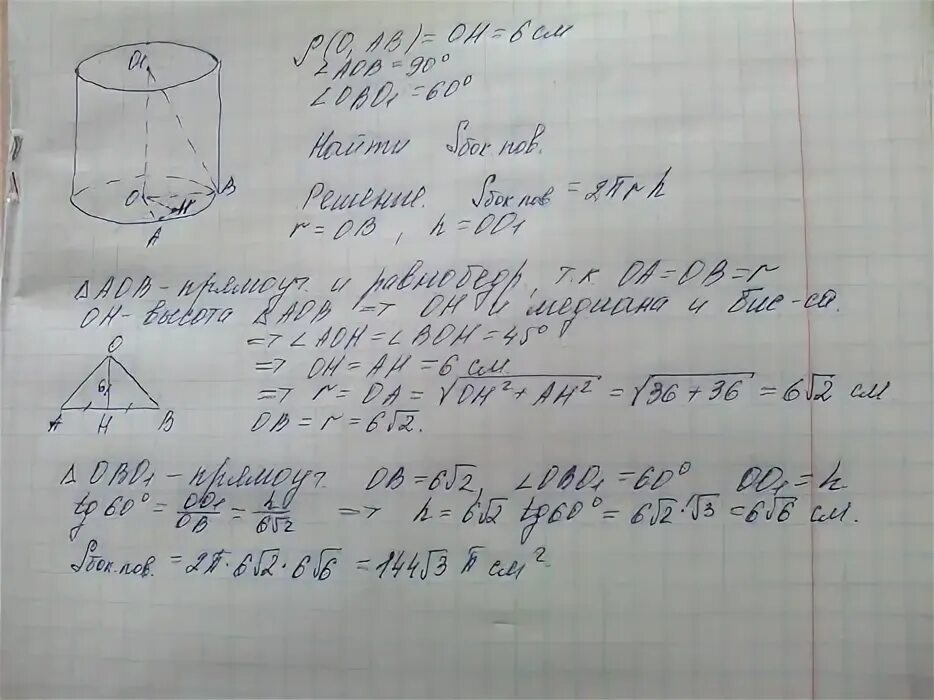 O1
O
H
B
A
ρ(O, AB) = OH = 6 см
∠AOB = 90°
∠OBO₁ = 60°
Найти Sбок.пов.
Решение. Sбок.пов = 2πrh
r = OB, h = OO₁
△AOB - прямоуг. и равнобедр, т.к. OA = OB = r
OH - высота △AOB => OH и медиана и бис-са.
=> ∠AOH = ∠BOH = 45°
=> OH = AH = 6 см
=> r = OA = √(OH² + AH²) = √(36 + 36) = 6√2 см
OB = r = 6√2.
O
6
A
H
B
△OBO₁ - прямоуг. OB = 6√2, ∠OBO₁ = 60° OO₁ = h
tg 60° = OO₁/OB = h/6√2 => h = 6√2 tg 60° = 6√2·√3 = 6√6 см.
Sбок.пов. = 2π·6√2·6√6 = 144√3 π см²